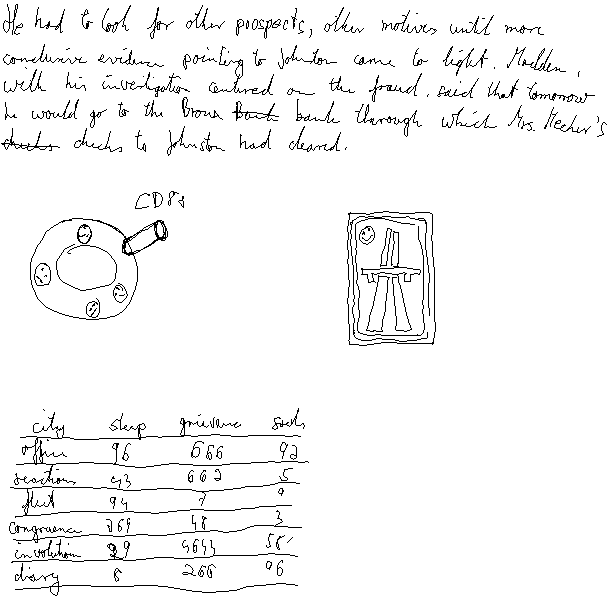 He had to look for other prospects, other motives until more
conclusive evidence pointing to Johnston came to light. Madden,
with his investigation centured on the fraud, said that tomorrow
he would go to the Bronx Bank bank through which Mrs. Meeker's
checks checks to Johnston had cleared.
city grievance
office 96 666 92
reactions 43 662 5
fleet 94 7 9
congruence 269 48 3
involution 29 4644
diary 8 266 96